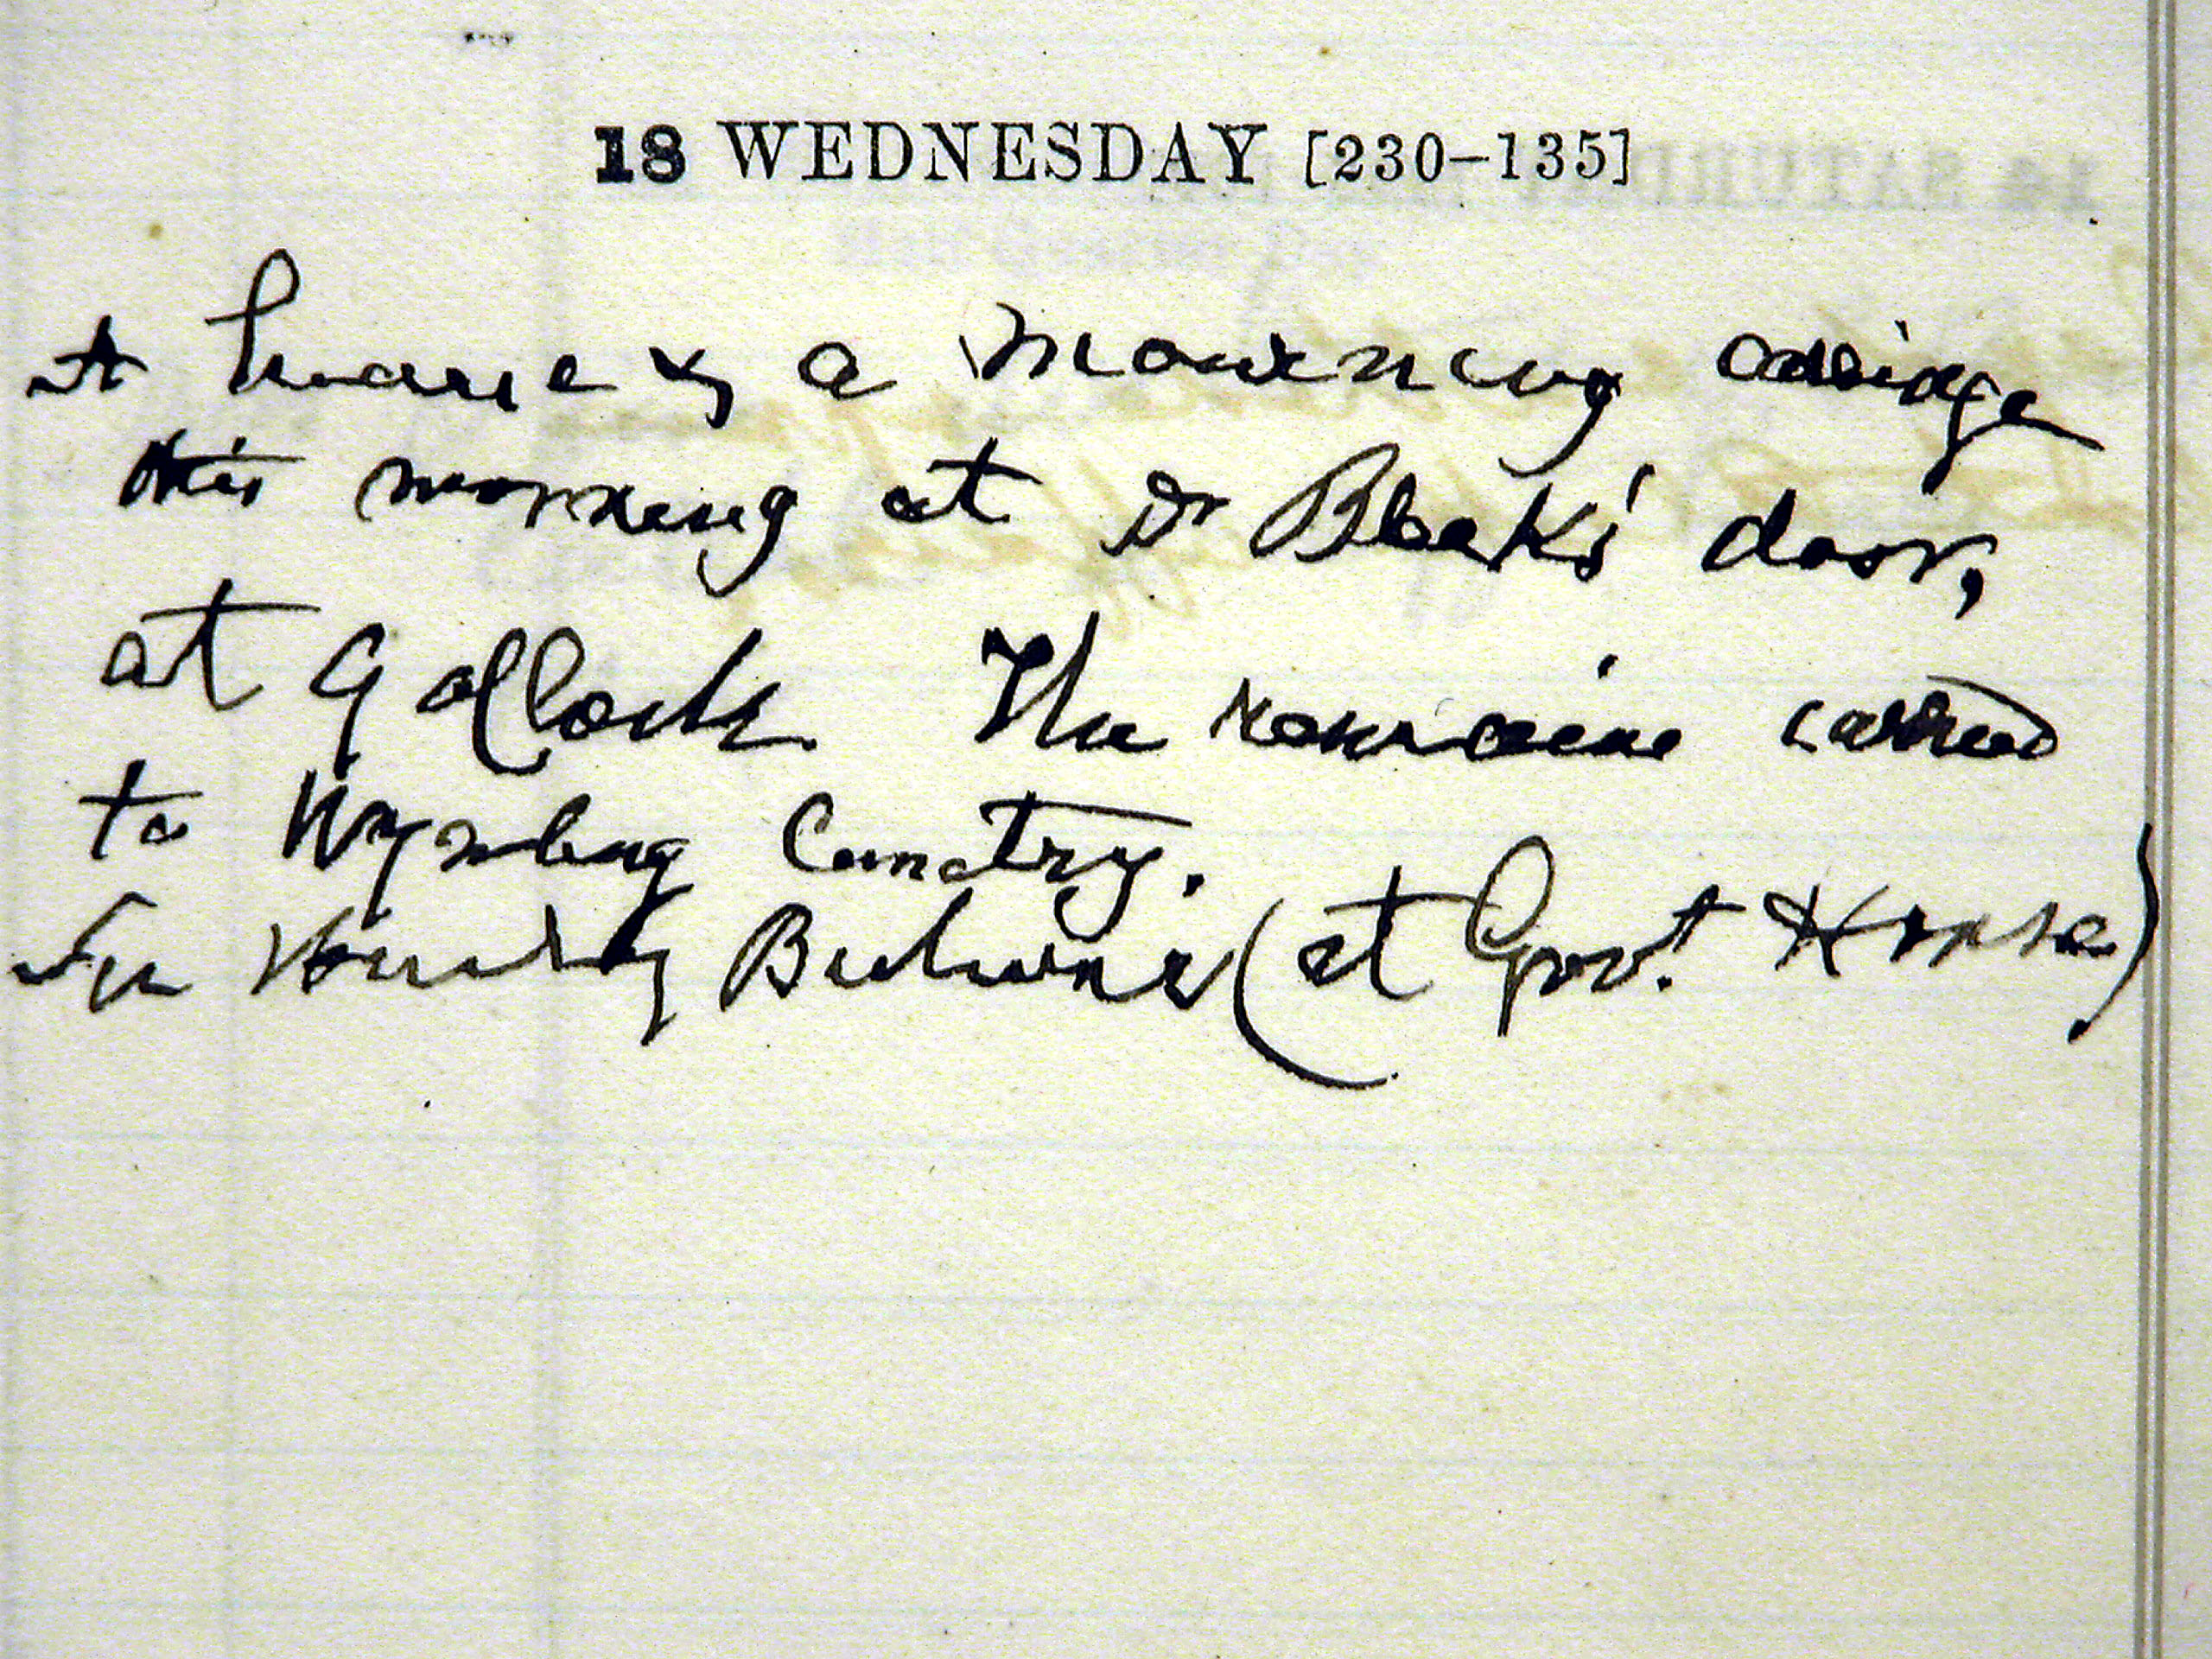 18 WEDNESDAY [230-135]
a mourning carriage
this morning at Dr Bleek's door,
at 9 o'clock. The remains carried
to Wynberg Cemetry.
Sir Henry Bulwer (at Govt House)